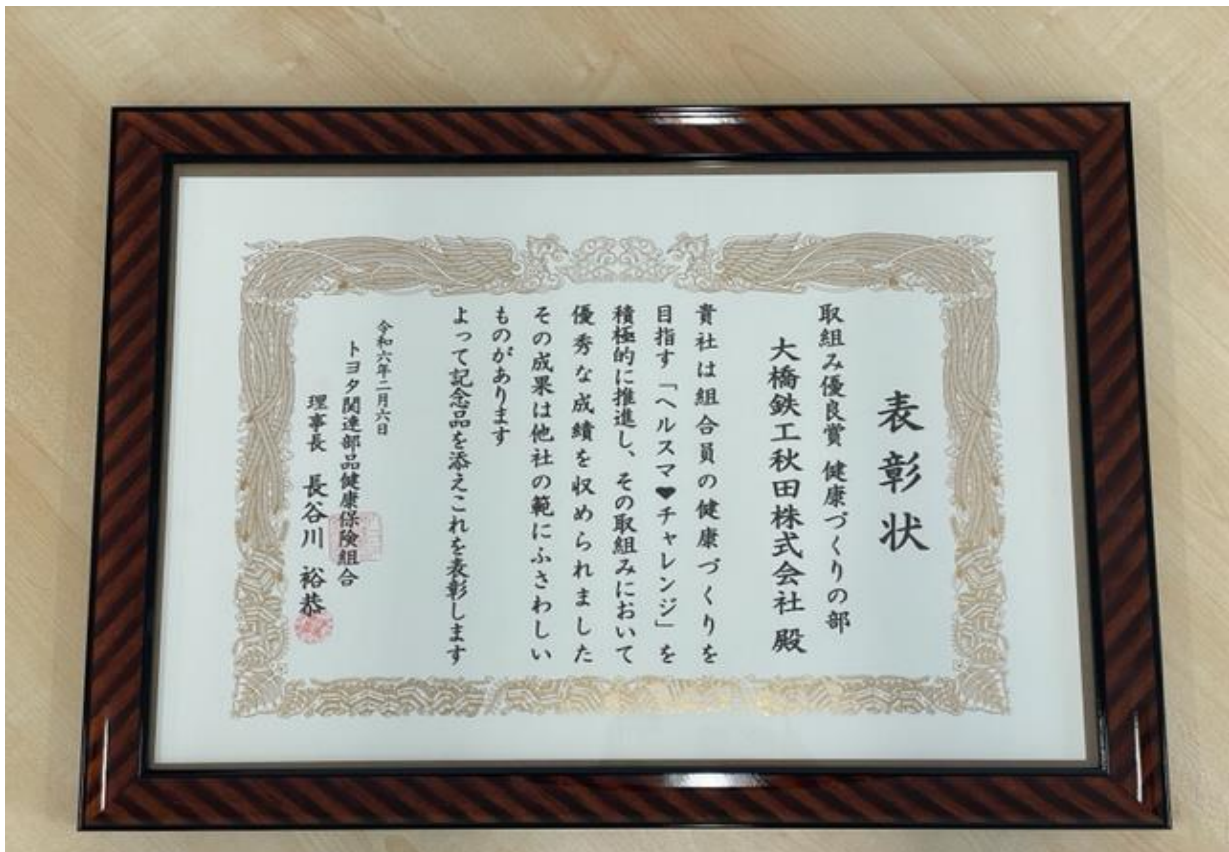 表彰状
取組み優良賞 健康づくりの部
大橋鉄工秋田株式会社 殿
貴社は組合員の健康づくりを
目指す「ヘルスマ♥チャレンジ」を
積極的に推進し、その取組みにおいて
優秀な成績を収められました
その成果は他社の範にふさわしい
ものがあります
よって記念品を添えこれを表彰します
令和六年二月六日
トヨタ関連部品健康保険組合
理事長 長谷川 裕恭